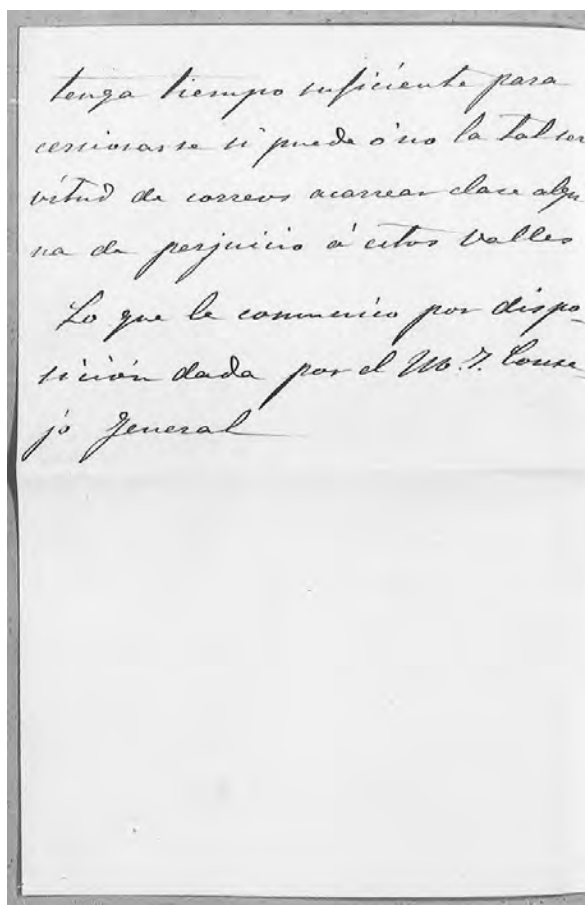 tenga tiempo suficiente para
cersiorarse si puede ó no la tal ser
vitud de correos acarrear clase algu
na de perjuicio á estos Valles
Lo que le comunico por dispo-
sición dada por el M. I. Conse
jo General